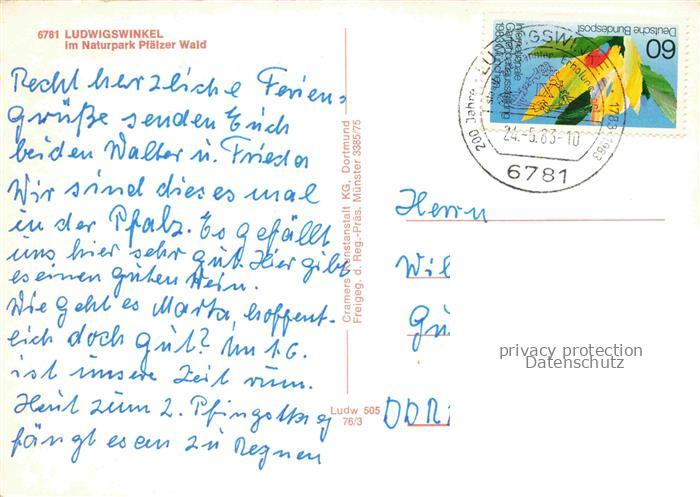 6781 LUDWIGSWINKEL
im Naturpark Pfälzer Wald
Recht herzliche Ferien=
grüße senden Euch
beiden Walter u. Frieda
Wir sind dieses mal
in der Pfalz. Es gefällt
uns hier sehr gut. Hier gibt
es einen guten Wein.
Wie geht es Marta, hoffent-
lich doch gut? Am 1.6.
ist unsere Zeit rum.
Heut zum 2. Pfingsttag
fängt es an zu regnen
Cramers Kunstanstalt KG, Dortmund
Freigeg. d. Reg.-Präs. Münster 3385/75
Ludw 505
76/3
Deutsche Bundespost
60
Internationale
Gartenbauausstellung
1983 München
LUDWIGSWINKEL
200 Jahre
1783-1983
24.-5.83-10
6781
Herrn
Wil
Gü
DDR
privacy protection
Datenschutz